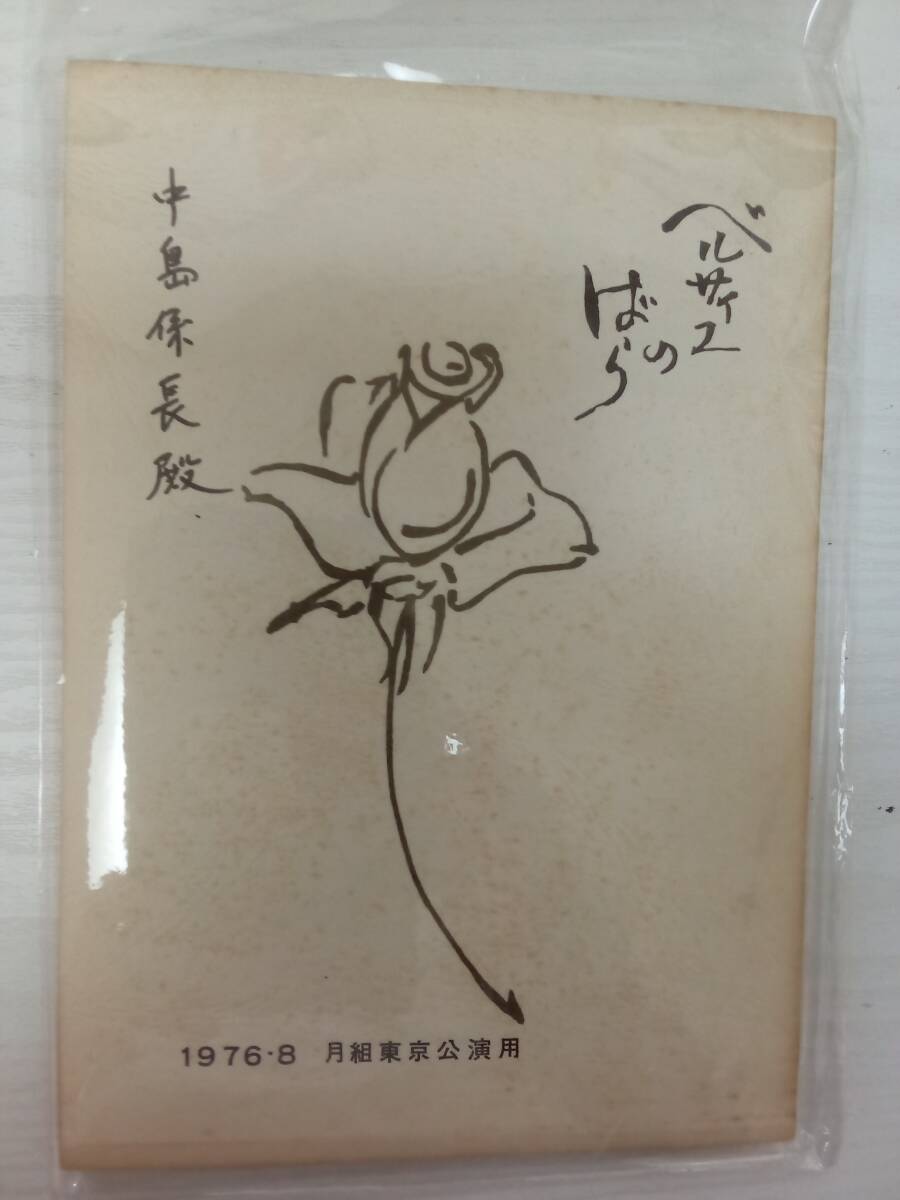 ベルサイユ
の
ばら
中島係長殿
1976・8 月組東京公演用